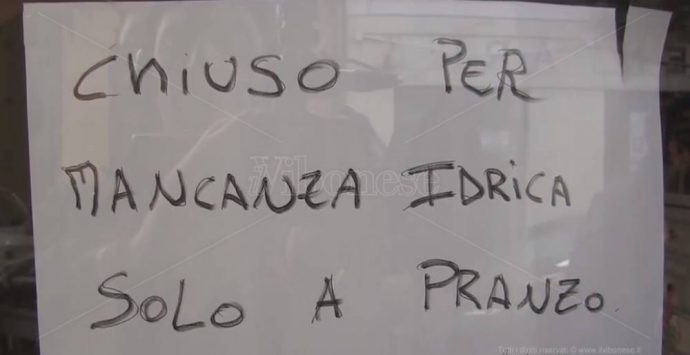 CHIUSO PER
MANCANZA IDRICA
ilVibonese
SOLO A PRANZO.
Tutti i diritti riservati © www.ilvibonese.it